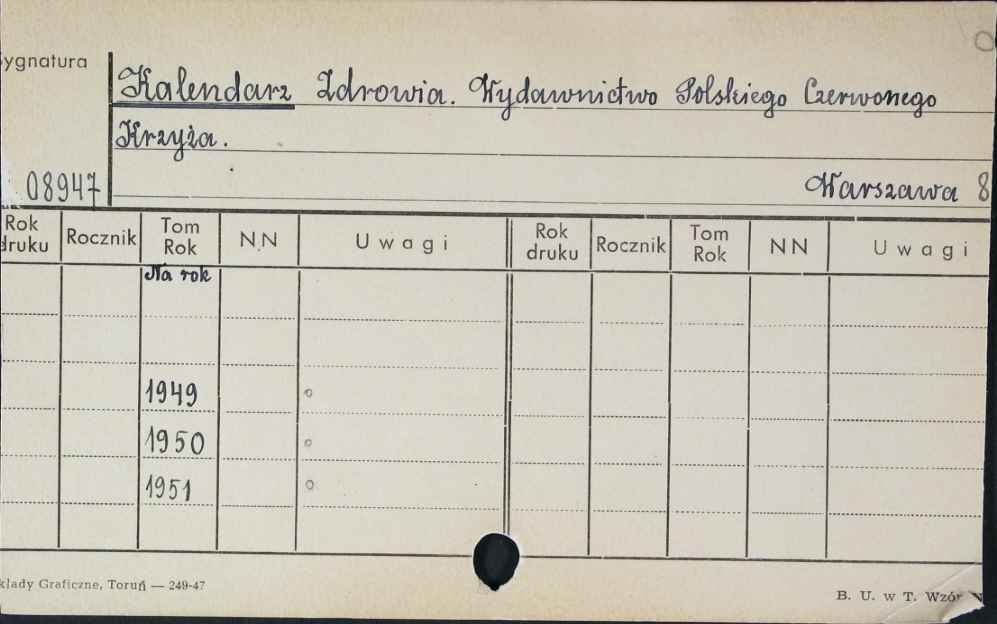 ygnatura
Kalendarz Zdrowia. Wydawnictwo Polskiego Czerwonego
Krzyża.
08947 Warszawa 8
Rok druku Rocznik Tom Rok N.N U w a g i Rok druku Rocznik Tom Rok N N U w a g i
Na rok
1949
1950
1951
kłady Graficzne, Toruń — 249-47
B. U. w T. Wzór